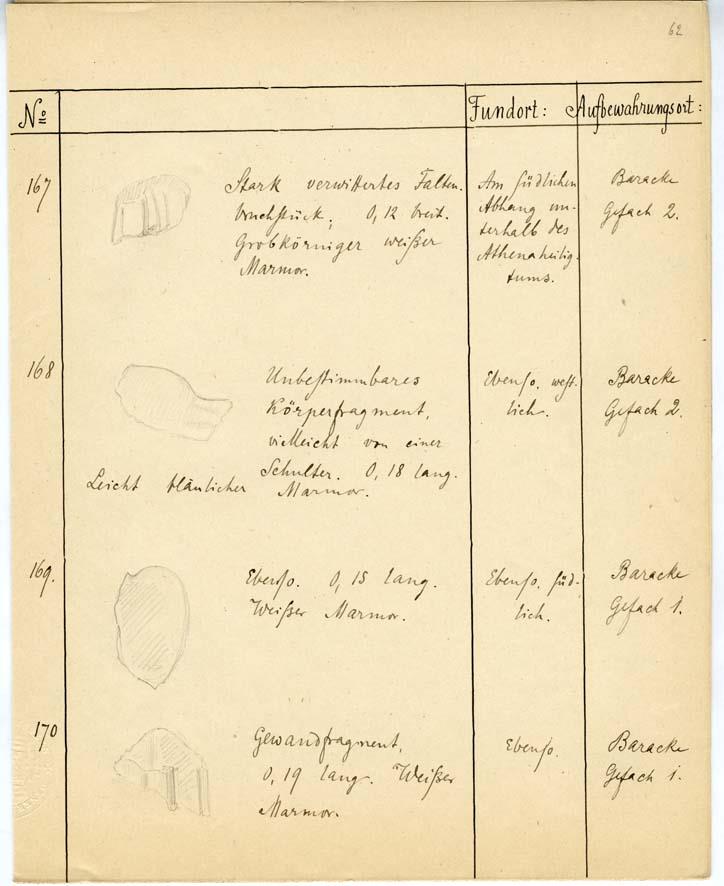 62
No Fundort: Aufbewahrungsort:
167
Stark verwittertes Falten-
bruchstück; 0,12 breit.
Grobkörniger weißer
Marmor.
Am südlichen
Abhang un-
terhalb des
Athenaheilig-
tums.
Baracke
Gefach 2.
168
Unbestimmbares
Körperfragment,
vielleicht von einer
Schulter. 0,18 lang.
Leicht bläulicher Marmor.
Ebenso. west-
lich.
Baracke
Gefach 2.
169.
Ebenso. 0,15 lang.
Weißer Marmor.
Ebenso. süd-
lich.
Baracke
Gefach 1.
170
Gewandfragment,
0,19 lang. Weißer
Marmor.
Ebenso.
Baracke
Gefach 1.